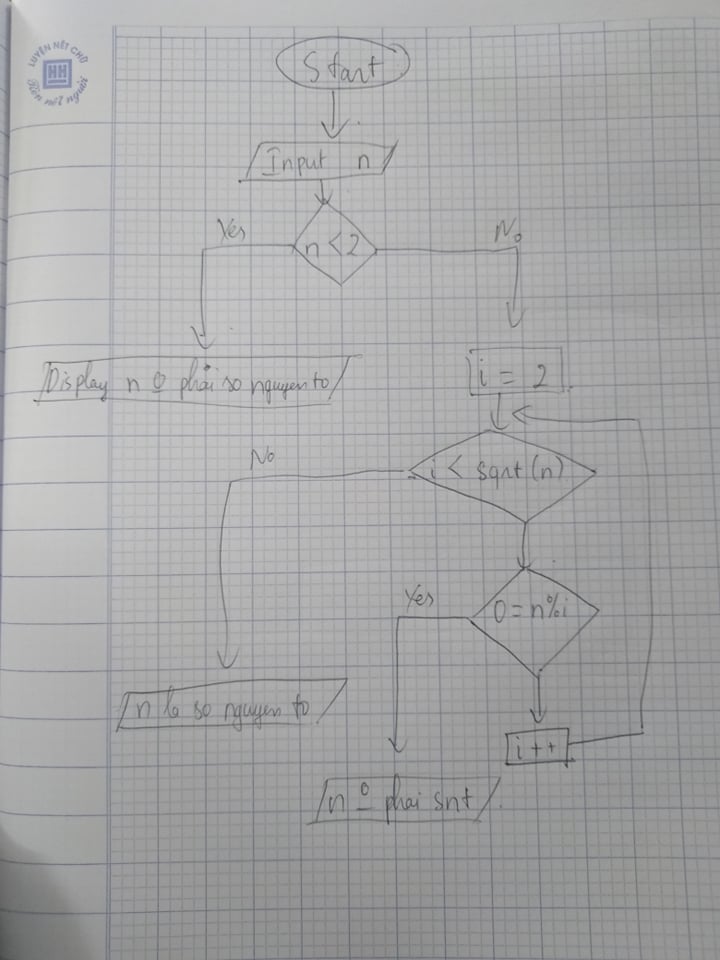 LUYỆN NÉT CHỮ
HH
Rèn nết người
Start
Input n
n < 2
Yes
No
Display n o phải so nguyen to
i = 2
i < sqrt (n)
No
0 = n%i
Yes
n la so nguyen to
i ++
n o phai snt